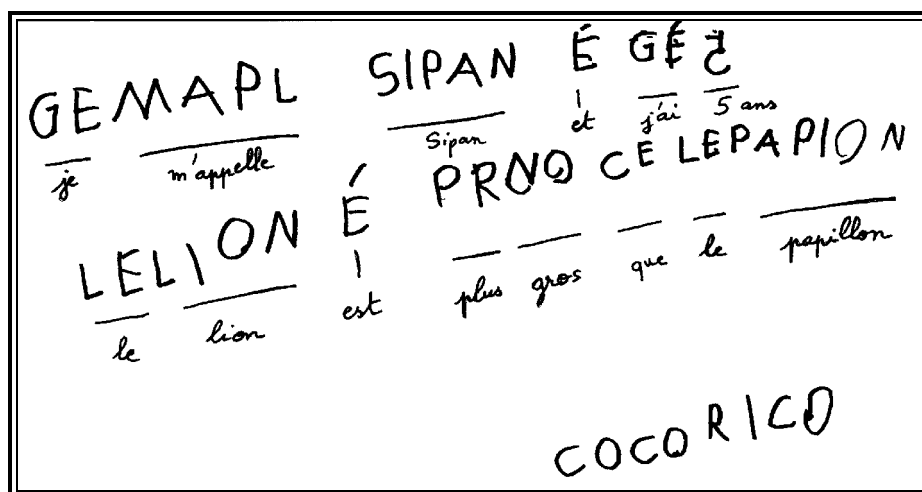 GEMAPL SIPAN É GÉ 5
je m'appelle Sipan et j'ai 5 ans
LELION É PRNO CE LEPAPION
le lion est plus gros que le papillon
COCORICO